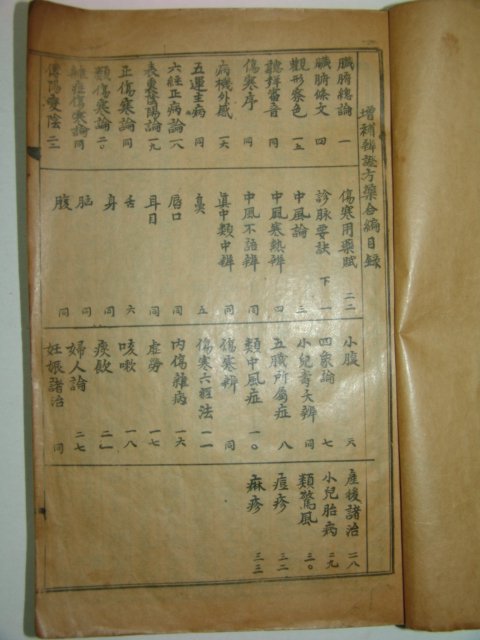 增補辨證方藥合編目錄
臟腑總論 一
臟腑條文 四
觀形察色 一五
聽祥審音 同
傷寒序 同
病機外感 一六
五運主病 同
六經正病論 一八
表裏陰陽論 一九
正傷寒論 同
類傷寒論 二〇
雜症傷寒論 同
傳陽變陰 二二
傷寒用藥賦 二二
診脉要訣 下 一
中風論 三
中風寒熱辨 四
中風不語辨 同
眞中類中辨 同
鼻 五
唇口 同
耳目 同
舌 六
身 同
腦 同
腹 同
小腹 六
四象論 七
小兒壽夭辨 同
五臟所屬症 八
類中風症 一〇
傷寒辨 同
傷寒六經法 一一
內傷雜病 一六
虛勞 一七
咳嗽 一八
痰飮 二一
婦人論 二七
妊娠諸治 同
產後諸治 二八
小兒胎病 二九
類驚風 三〇
痘疹 三二
麻疹 三三